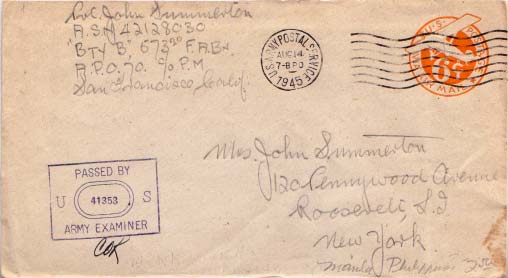 Pvt. John Summerton
A.S.N 42128030
"Bty B" 673rd F.A.Bn.
A.P.O. 70. c/o P.M.
San Francisco, Calif.
U.S. ARMY POSTAL SERVICE
AUG 14
7-8 PD
1945
U.S. POSTAGE
VIA AIR MAIL
6¢
Mrs. John Summerton
120 Pennywood Avenue
Roosevelt, L.I
New York.
Manila Philippines
PASSED BY
U 41353 S
ARMY EXAMINER